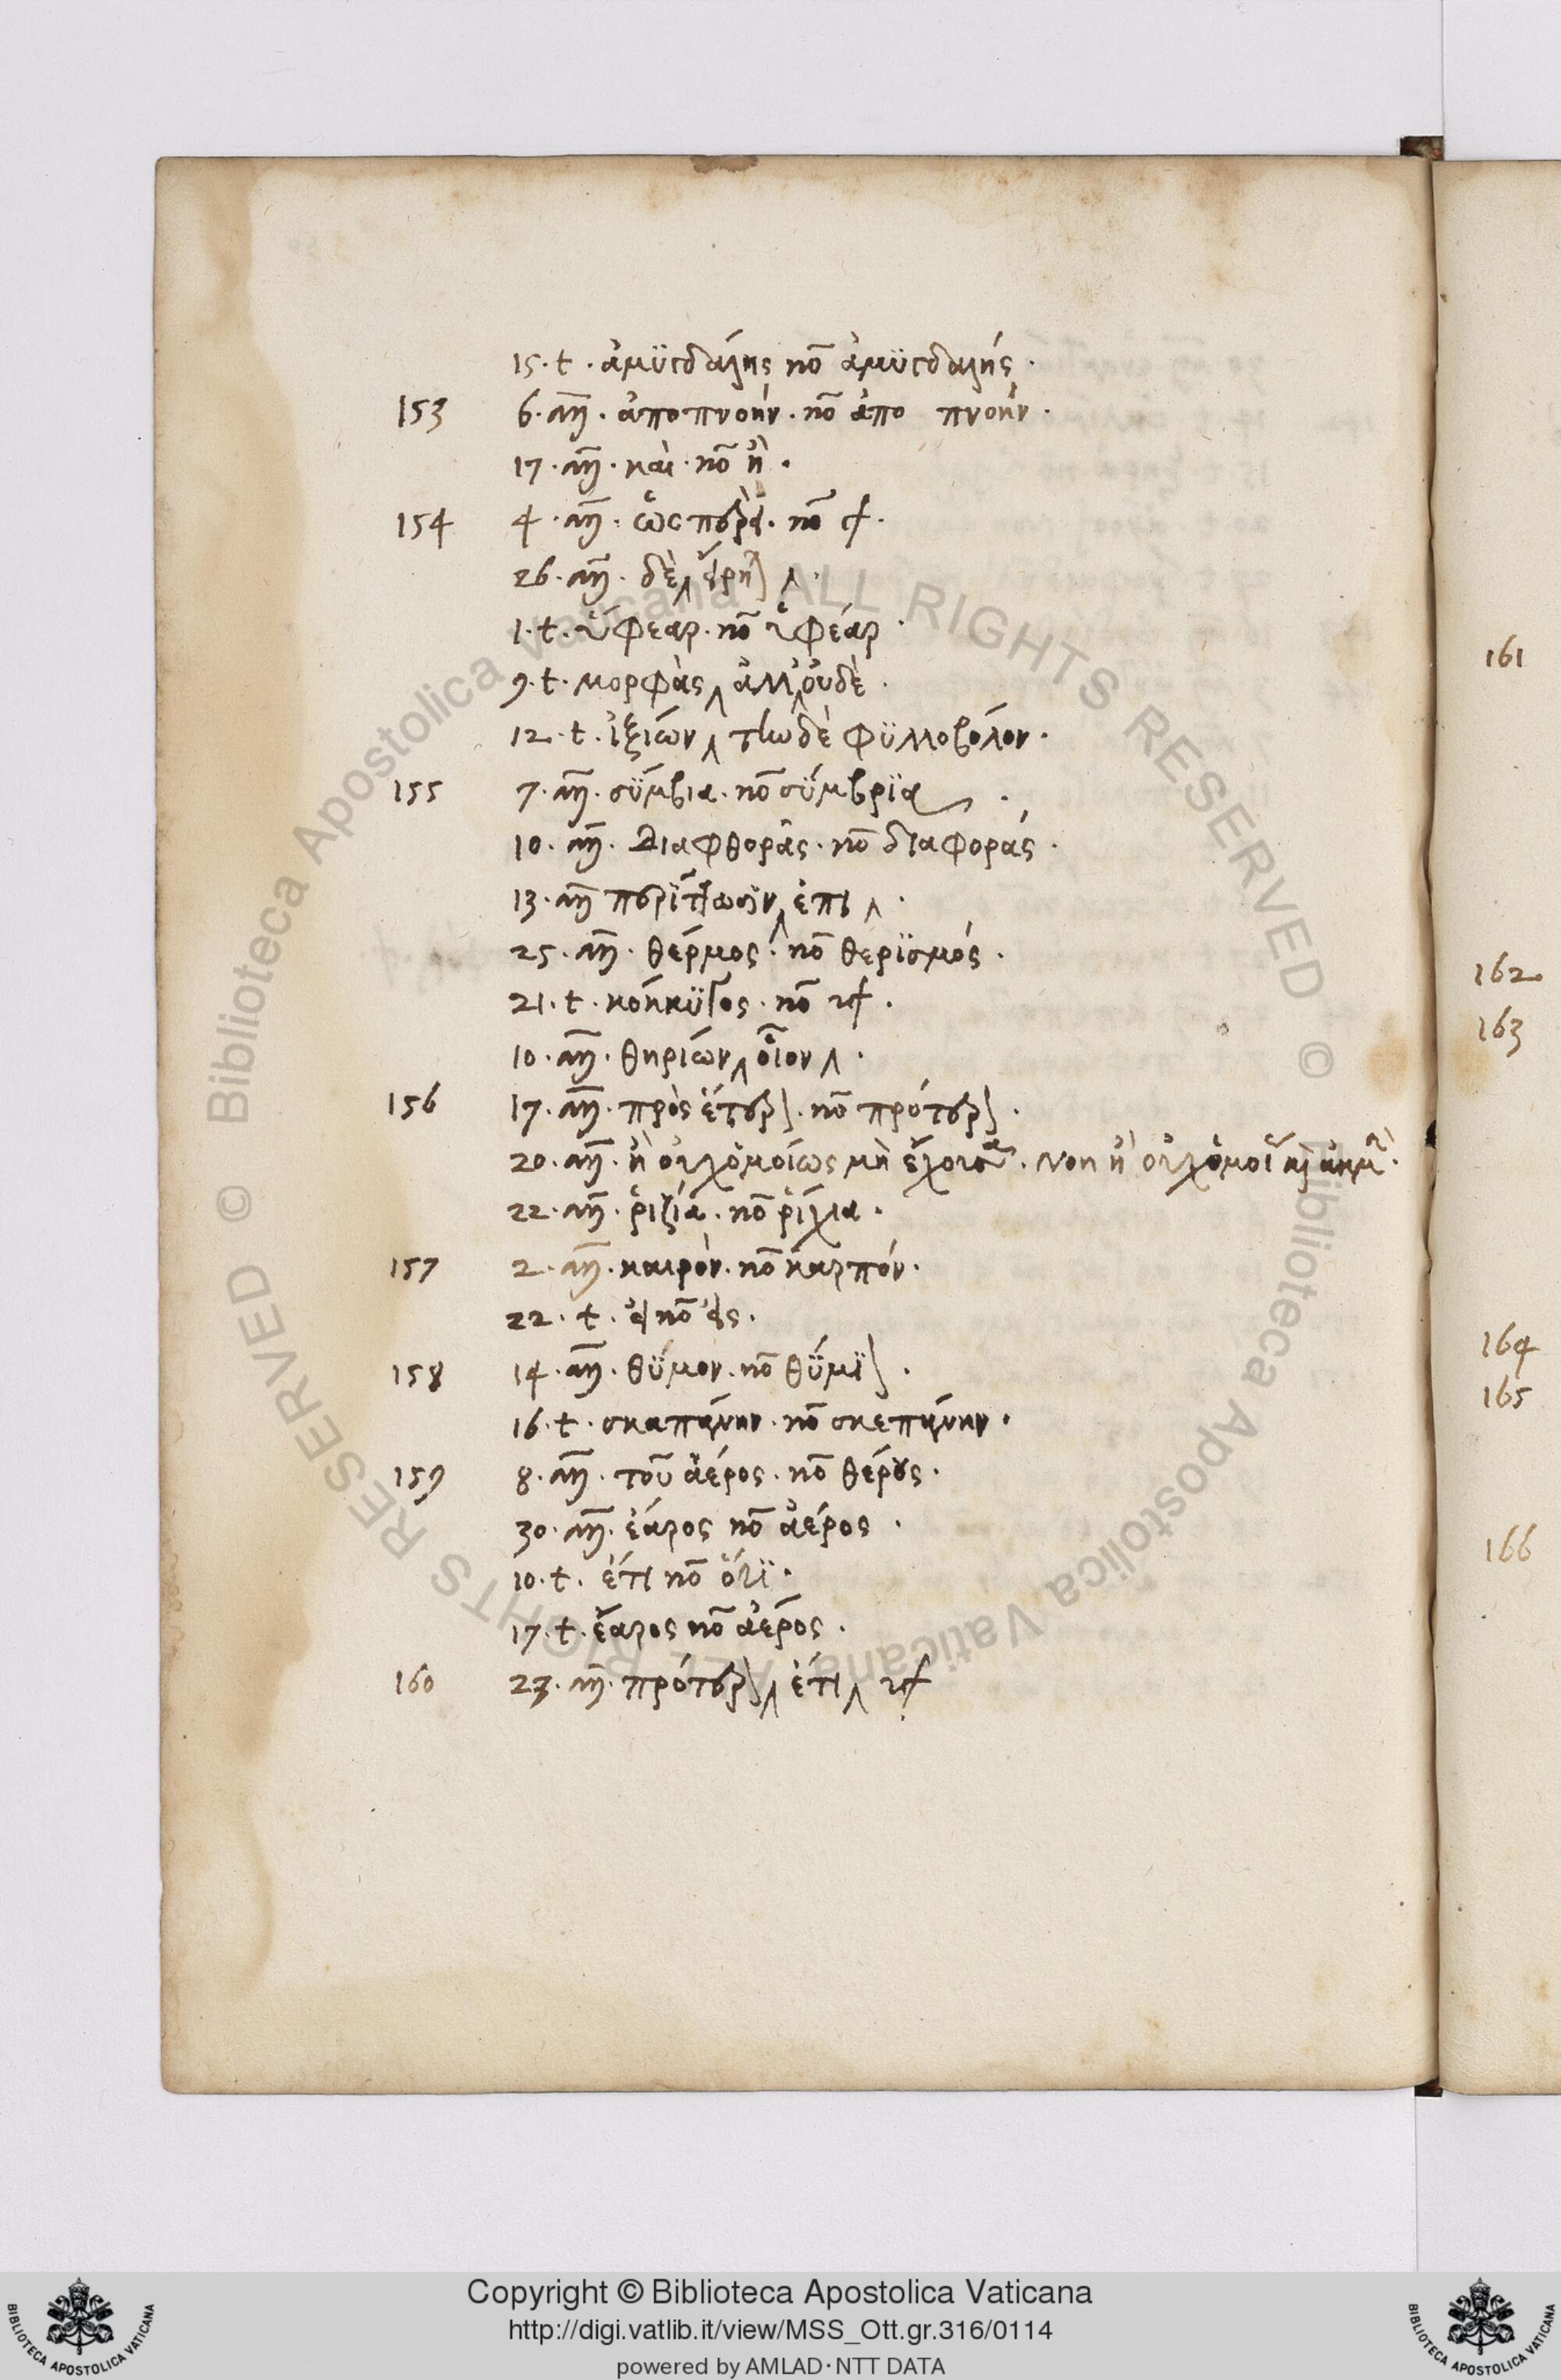 15. t. ἀμϋγδάλης nō ἀμϋγδαλῆς.
153 6. añ. ἀποπνοήν. nō ἀπο πνοήν.
17. añ. καὶ. nō ἢ.
154 4. añ. ὥσπερ nō
26. añ. δὲ
1. t. ὕφεαρ. nō ὑφέαρ.
9. t. μορφὰς ἀλλ' οὐδὲ.
12. t. ἰξιῶν τὼ δὲ φϋλλοβόλον.
155 7. añ. σϋμβια. nō σϋμβρϊα.
10. añ. διαφθορᾶς. nō διαφοράς.
13. añ ἐπὶ.
25. añ. θέρμος. nō θερϊσμός.
21. t. nō
10. añ. θηρίων οἷον.
156 17. añ. πρὸς ἕτερον. nō πρότερον.
20. añ. ἢ οὐχ ὁμοίως μὴ ἔχουσα. Non ἢ οὐχ ὁμοῖαι
22. añ. ῥιζία. nō ῥίχια.
157 2. añ. καιρόν. nō καρπόν.
22. t. εἰ nō εἰς.
158 14. añ. θϋμον. nō θϋμϊον.
16. t. σκαπάνην. nō σκεπάνην.
159 8. añ. τοῦ ἀέρος. nō θέρους.
30. añ. ἐάρος nō ἀέρος.
10. t. ἔτι nō ὅτϊ.
17. t. ἔαρος nō ἀέρος.
160 23. añ. πρότερον ἔτι
161
162
163
164
165
166
Copyright © Biblioteca Apostolica Vaticana
http://digi.vatlib.it/view/MSS_Ott.gr.316/0114
powered by AMLAD·NTT DATA
BIBLIOTECA APOSTOLICA VATICANA
BIBLIOTECA APOSTOLICA VATICANA
© Biblioteca Apostolica Vaticana ALL RIGHTS RESERVED © Biblioteca Apostolica Vaticana ALL RIGHTS RESERVED